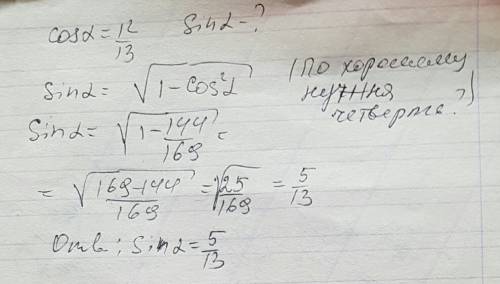 cosα = 12/13   Sinα - ?
Sinα = √(1 - cos²α)
(По хорошему
нужна
четверть?)
Sinα = √(1 - 144/169) =
= √((169-144)/169) = √(25/169) = 5/13
Отв: Sinα = 5/13